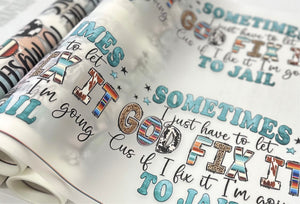 SOMETIMES
to let
FIX IT
I'm going
JAIL
SOMETIMES
I just have to let
GOD FIX IT
Cus if I fix it I'm going
TO JAIL
just have
GOD FIX
Cus if I fix it I'm
TO JAIL